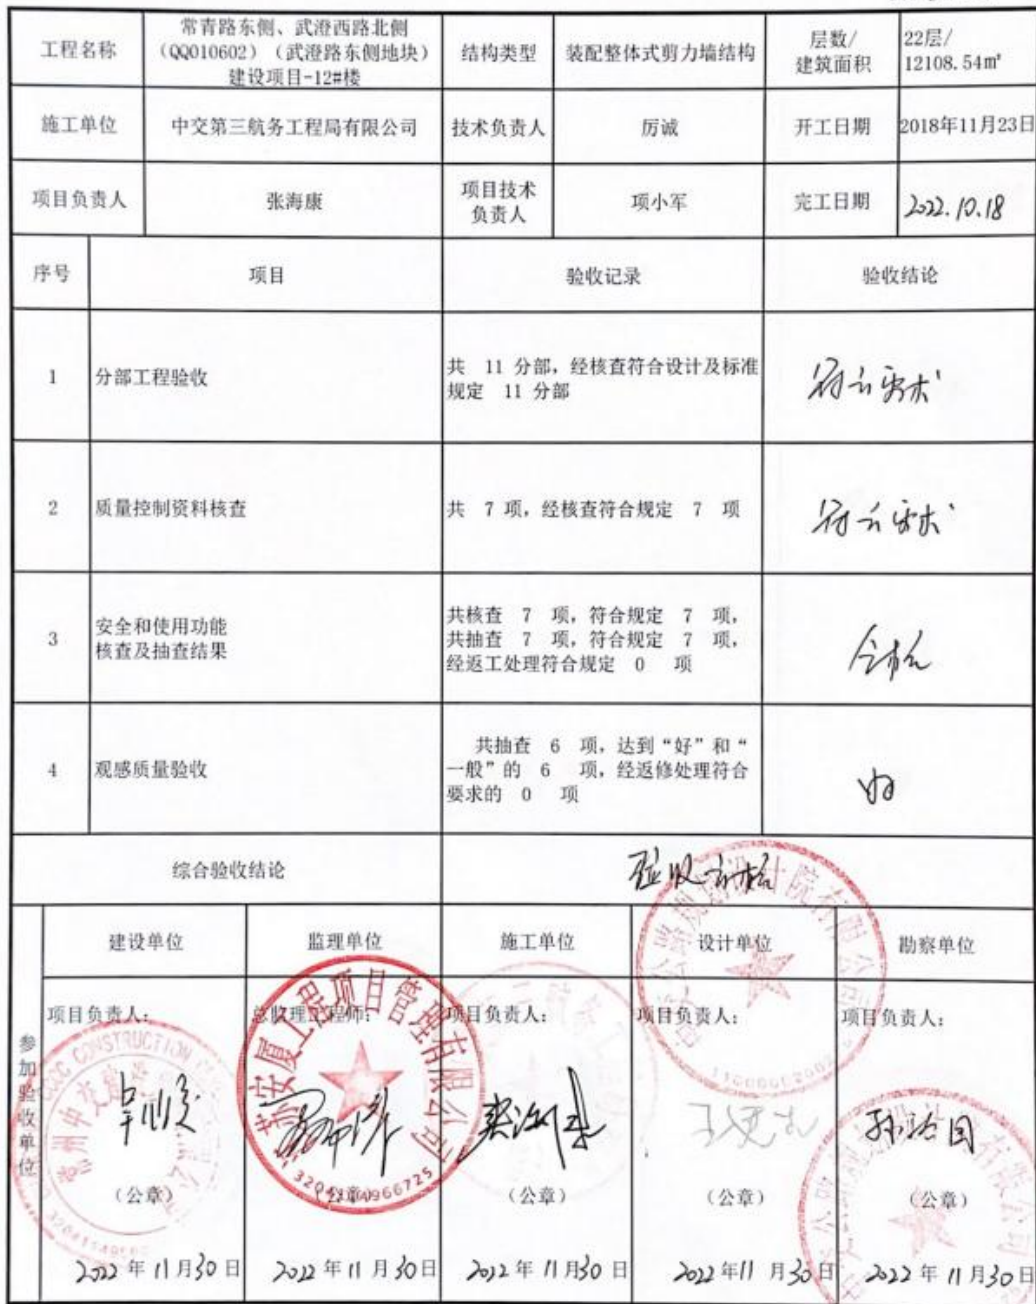 工程名称
常青路东侧、武澄西路北侧
（QQ010602）（武澄路东侧地块）
建设项目-12#楼
结构类型
装配整体式剪力墙结构
层数/
建筑面积
22层/
12108.54㎡
施工单位
中交第三航务工程局有限公司
技术负责人
厉诚
开工日期
2018年11月23日
项目负责人
张海康
项目技术
负责人
项小军
完工日期
2022.10.18
序号
项目
验收记录
验收结论
1
分部工程验收
共 11 分部，经核查符合设计及标准
规定 11 分部
符合要求
2
质量控制资料核查
共 7 项，经核查符合规定 7 项
符合要求
3
安全和使用功能
核查及抽查结果
共核查 7 项，符合规定 7 项，
共抽查 7 项，符合规定 7 项，
经返工处理符合规定 0 项
合格
4
观感质量验收
共抽查 6 项，达到“好”和“
一般”的 6 项，经返修处理符合
要求的 0 项
好
综合验收结论
验收合格
参加验收单位
建设单位
监理单位
施工单位
设计单位
勘察单位
项目负责人：
总监理工程师：
项目负责人：
项目负责人：
项目负责人：
安厦工程项目管理有限公司
（公章）
（公章）
（公章）
（公章）
（公章）
2022 年 11 月 30 日
2022 年 11 月 30 日
2022 年 11 月 30 日
2022 年 11 月 30 日
2022 年 11 月 30 日